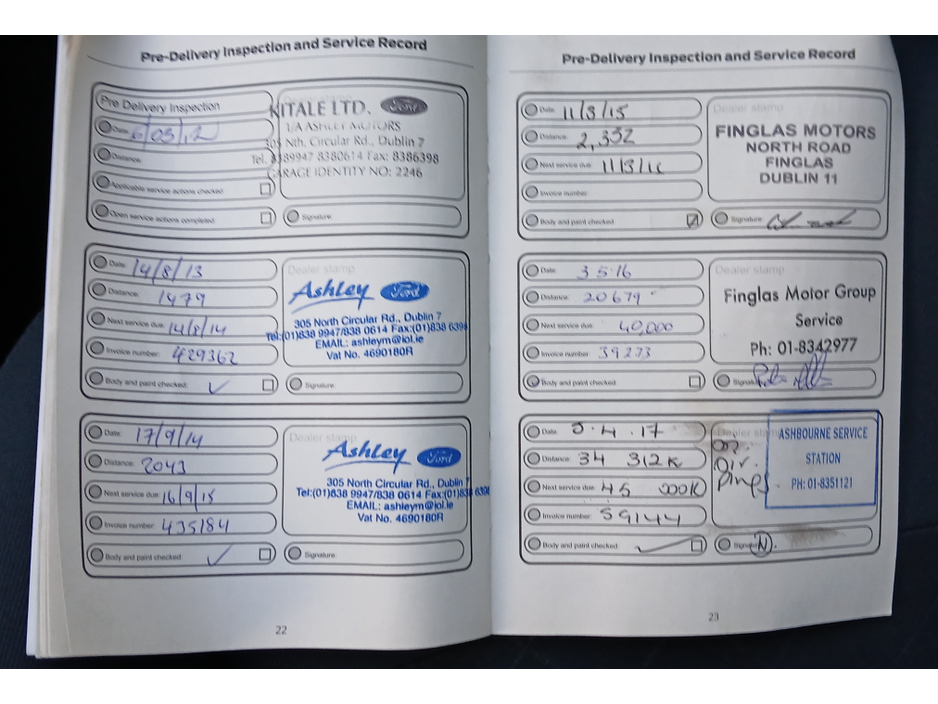 Pre-Delivery Inspection and Service Record
Pre Delivery Inspection
Date: 6/03/12
Distance:
Applicable service actions checked:
Open service actions completed:
KITALE LTD. Ford
T/A ASHLEY MOTORS
305 Nth. Circular Rd., Dublin 7
Tel. 8389947 8380614 Fax: 8386398
GARAGE IDENTITY NO: 2246
Signature:
Date: 14/8/13
Distance: 1479
Next service due: 14/8/14
Invoice number: 429362
Body and paint checked: ✓
Dealer stamp
Ashley Ford
305 North Circular Rd., Dublin 7
Tel:(01)838 9947/838 0614 Fax:(01)838 6398
EMAIL: ashleym@iol.ie
Vat No. 4690180R
Signature:
Date: 17/9/14
Distance: 2043
Next service due: 16/9/15
Invoice number: 435184
Body and paint checked: ✓
Dealer stamp
Ashley Ford
305 North Circular Rd., Dublin 7
Tel:(01)838 9947/838 0614 Fax:(01)838 6398
EMAIL: ashleym@iol.ie
Vat No. 4690180R
Signature:
22
Pre-Delivery Inspection and Service Record
Date: 11/3/15
Distance: 2,332
Next service due: 11/3/16
Invoice number:
Body and paint checked
Dealer stamp
FINGLAS MOTORS
NORTH ROAD
FINGLAS
DUBLIN 11
Signature:
Date: 3 5·16
Distance: 20679
Next service due: 40,000
Invoice number: 39273
Body and paint checked
Dealer stamp
Finglas Motor Group
Service
Ph: 01-8342977
Signature:
Date: 5.4.17
Distance: 34 312K
Next service due: 45 000K
Invoice number: 59144
Body and paint checked
Dealer stamp
ASHBOURNE SERVICE
STATION
PH: 01-8351121
Signature: N.
23